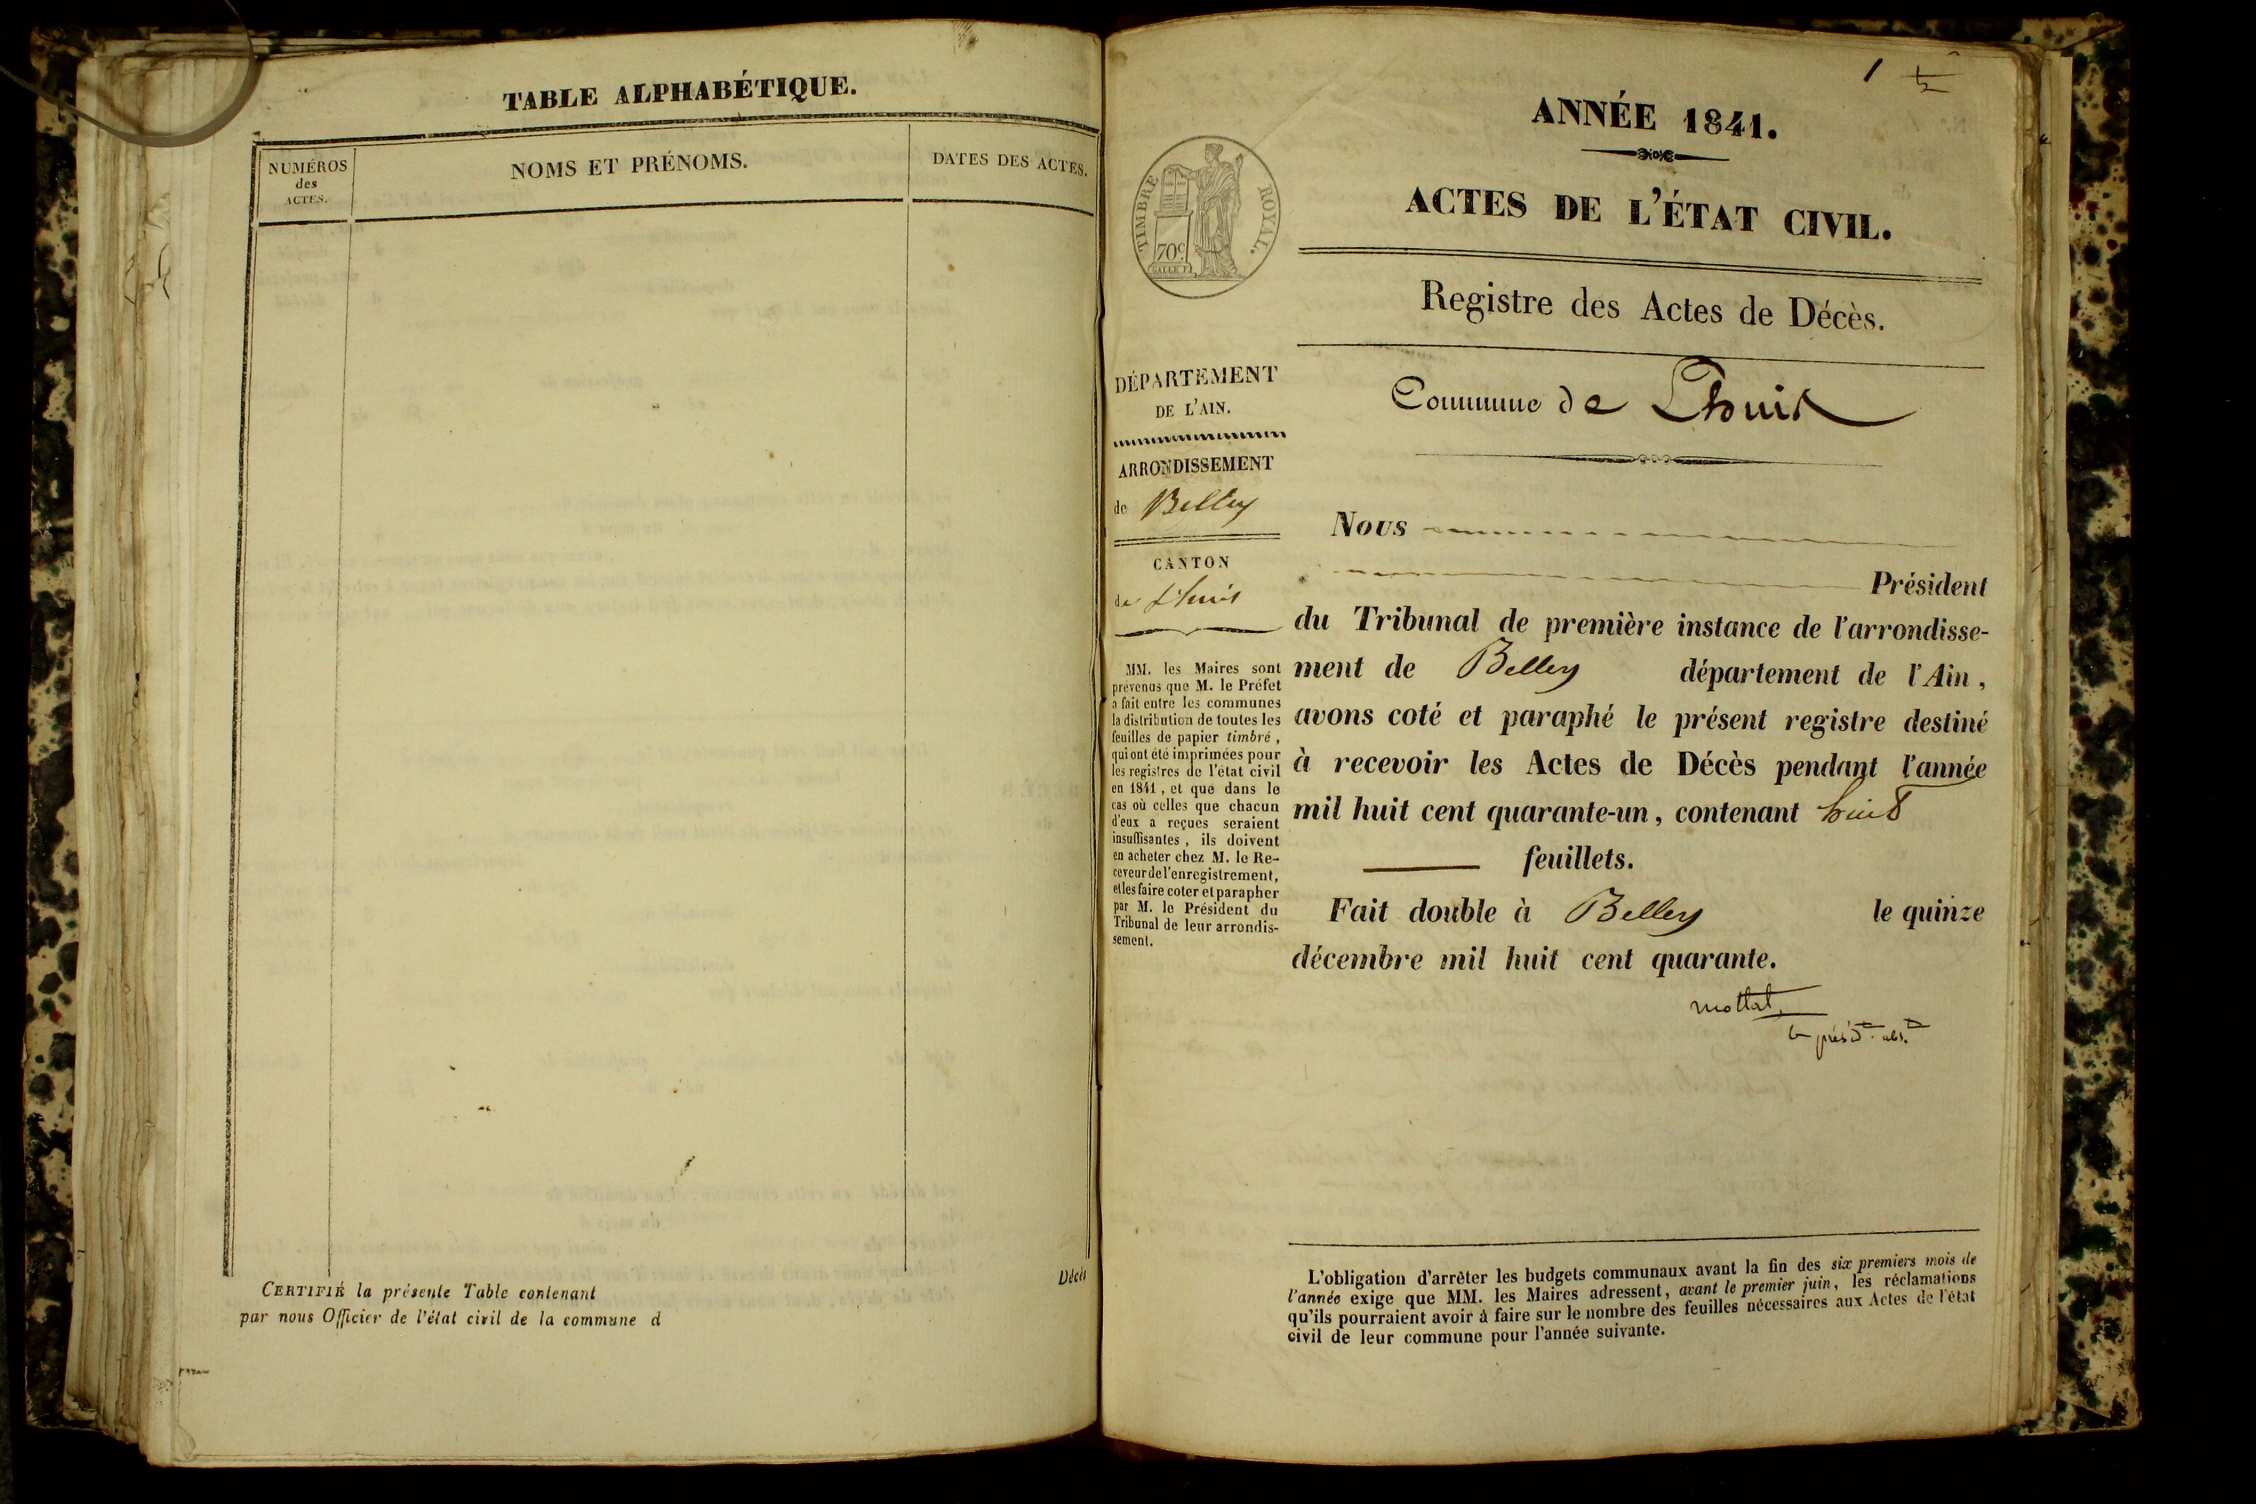 TABLE ALPHABÉTIQUE.
NUMÉROS
des
ACTES.
NOMS ET PRÉNOMS.
DATES DES ACTES.
CERTIFIÉ la présente Table contenant
par nous Officier de l'état civil de la commune d
Décès
1
ANNÉE 1841.
TIMBRE ROYAL.
70c
ACTES DE L'ÉTAT CIVIL.
Registre des Actes de Décès.
DÉPARTEMENT
DE L'AIN.
ARRONDISSEMENT
de Belley
CANTON
de Lhuis
MM. les Maires sont
prévenus que M. le Préfet
a fait entre les communes
la distribution de toutes les
feuilles de papier timbré,
qui ont été imprimées pour
les registres de l'état civil
en 1841, et que dans le
cas où celles que chacun
d'eux a reçues seraient
insuffisantes, ils doivent
en acheter chez M. le Re-
ceveur de l'enregistrement,
et les faire coter et parapher
par M. le Président du
Tribunal de leur arrondis-
sement.
Commune de Lhuis
Nous
Président
du Tribunal de première instance de l'arrondisse-
ment de Belley département de l'Ain,
avons coté et paraphé le présent registre destiné
à recevoir les Actes de Décès pendant l'année
mil huit cent quarante-un, contenant huit
feuillets.
Fait double à Belley le quinze
décembre mil huit cent quarante.
mottat
L'obligation d'arrêter les budgets communaux avant la fin des six premiers mois de
l'année exige que MM. les Maires adressent, avant le premier juin, les réclamations
qu'ils pourraient avoir à faire sur le nombre des feuilles nécessaires aux Actes de l'état
civil de leur commune pour l'année suivante.